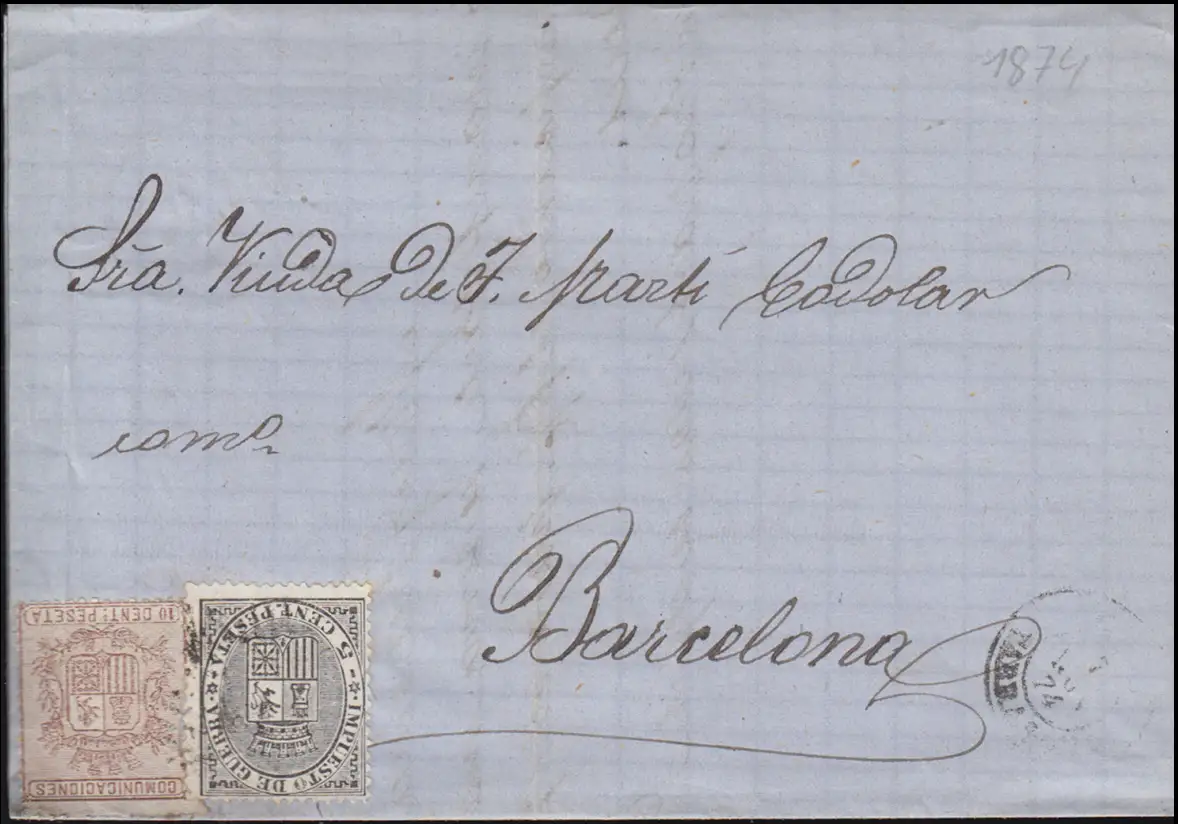 1874
Sra. Viuda de F. Martí Codolar
como
Barcelona
10 CENT.s PESETA
COMUNICACIONES
5 CENT. PESETA
IMPUESTO DE GUERRA